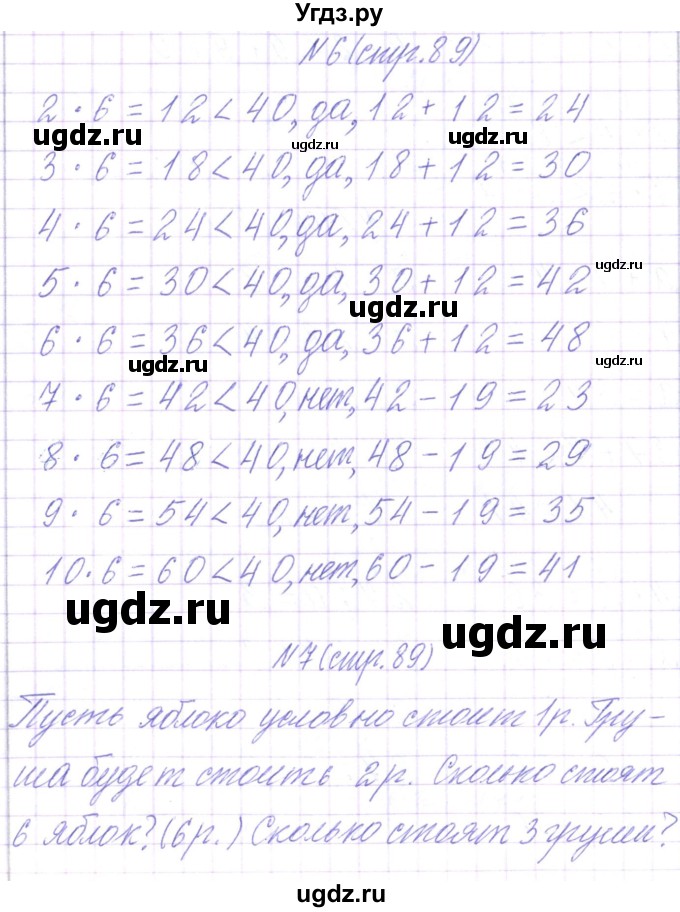 Угдз.ру
N6(стр.89)
2 · 6 = 12 < 40, да, 12 + 12 = 24
ugdz.ru ugdz.ru ugdz.ru
3 · 6 = 18 < 40, да, 18 + 12 = 30
4 · 6 = 24 < 40, да, 24 + 12 = 36
ugdz.ru
5 · 6 = 30 < 40, да, 30 + 12 = 42
ugdz.ru
6 · 6 = 36 < 40, да, 36 + 12 = 48
ugdz.ru ugdz.ru
7 · 6 = 42 < 40, нет, 42 - 19 = 23
8 · 6 = 48 < 40, нет, 48 - 19 = 29
9 · 6 = 54 < 40, нет, 54 - 19 = 35
10 · 6 = 60 < 40, нет, 60 - 19 = 41
ugdz.ru ugdz.ru
N7(стр.89)
Пусть яблоко условно стоит 1р. Гру-
ша будет стоить 2р. Сколько стоят
6 яблок? (6р.) Сколько стоят 3 груши?
ugdz.ru